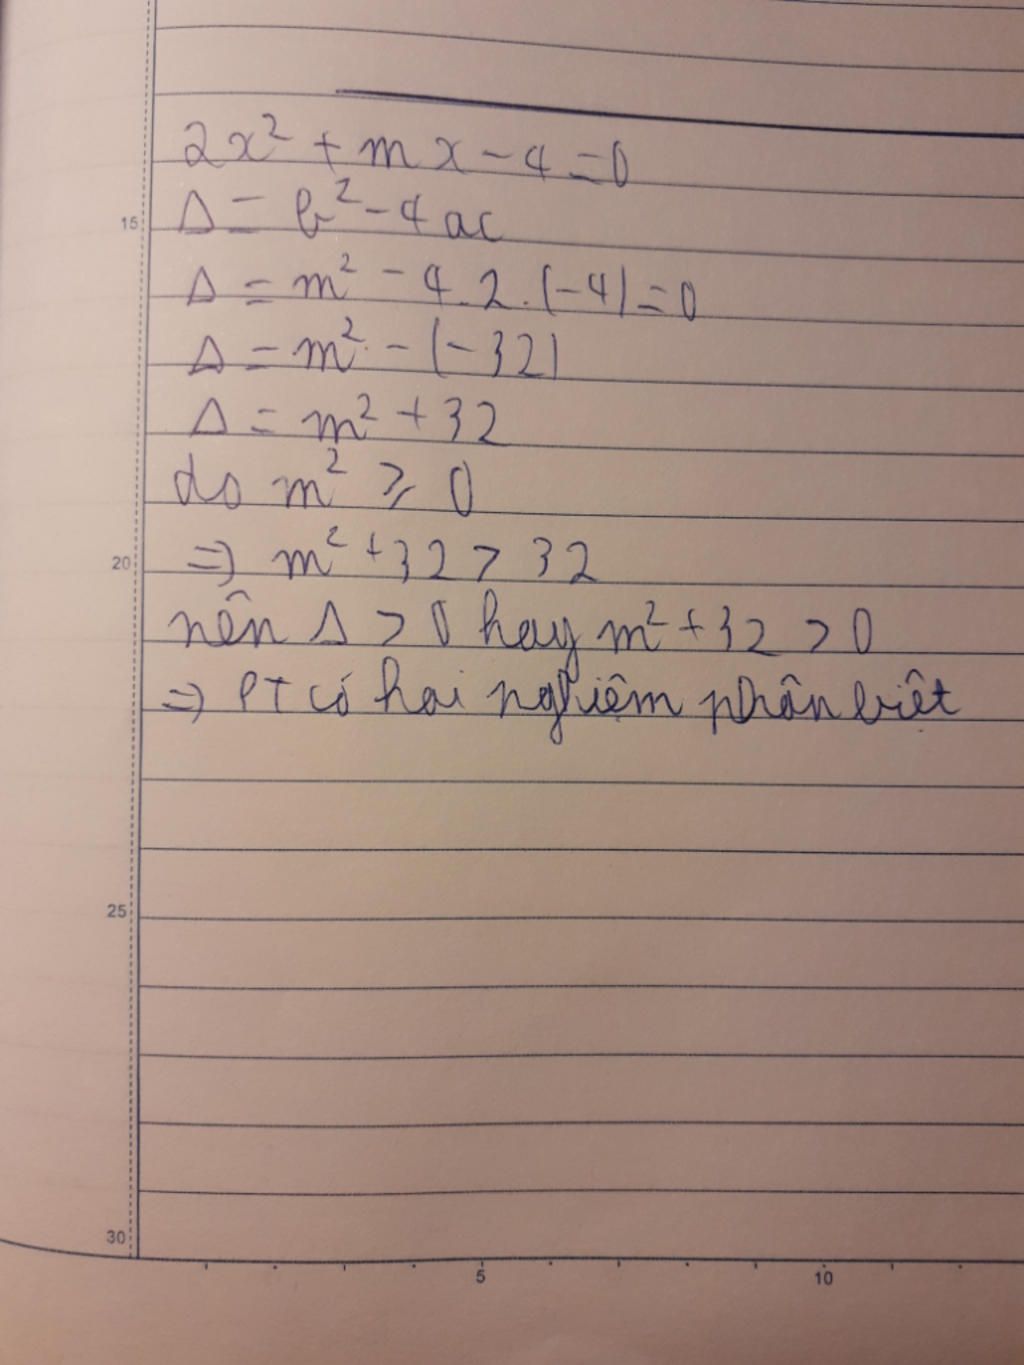 2x² + mx - 4 = 0
15
Δ = b² - 4ac
Δ = m² - 4.2.(-4) = 0
Δ = m² - (-32)
Δ = m² + 32
do m² ⩾ 0
20
=> m² + 32 > 32
nên Δ > 0 hay m² + 32 > 0
=> PT có hai nghiệm phân biêt
25
30
5 10